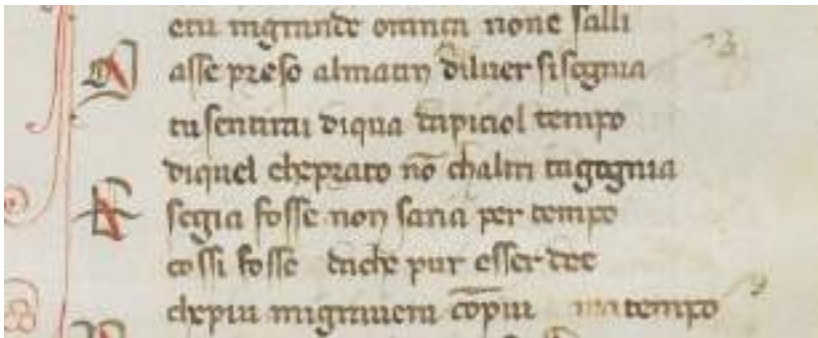 etu ingrande none salli
M asse preso almatin diluer sisognia
tu sentirai diqua dapiciol tempo
diquel cheprato nō chaltri tagognia
E segia fosse non saria per tempo
cossi fosse dache pur esser dee
chepiu migrauera cōpiu matempo